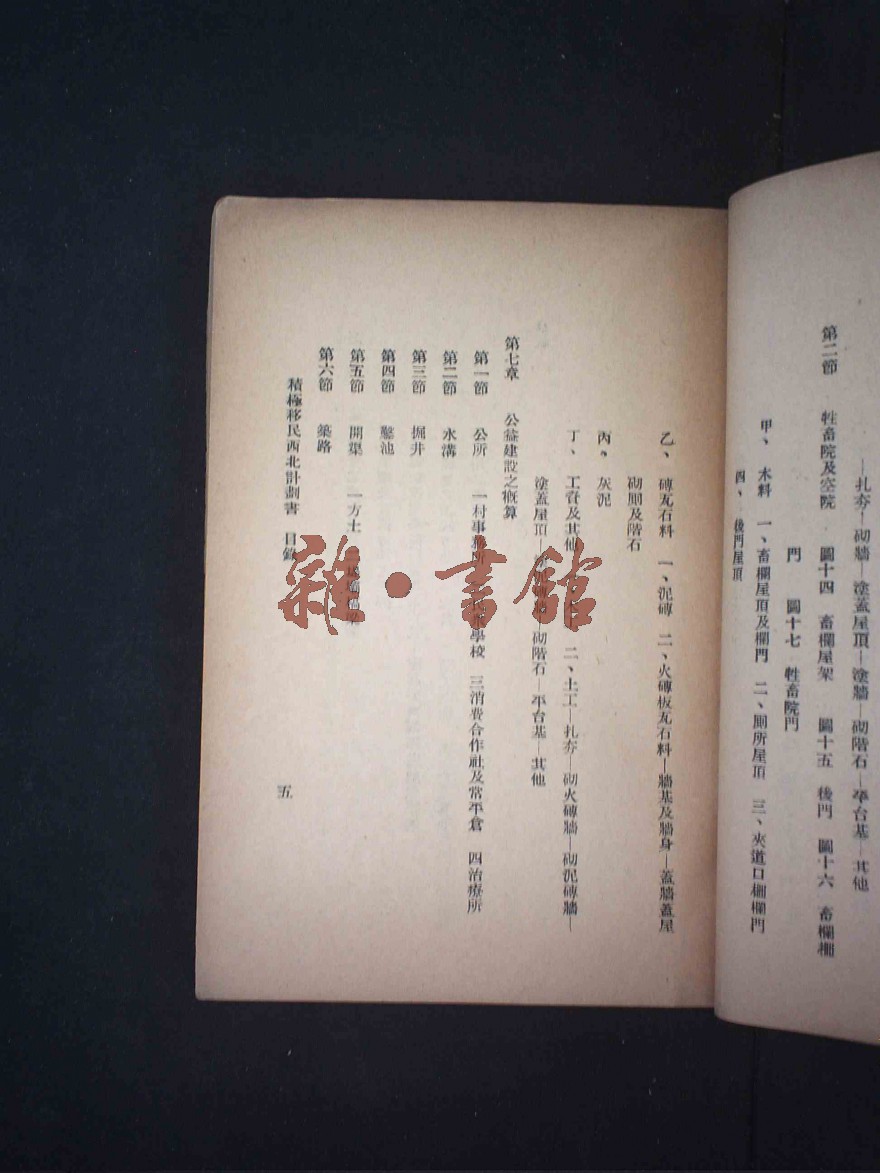 —扎夯—砌牆—塗蓋屋頂—塗牆—砌階石—平台基—其他
第二節 牲畜院及空院 圖十四 畜欄屋架 圖十五 後門 圖十六 畜欄柵
門 圖十七 牲畜院門
甲、木料 一、畜欄屋頂及欄門 二、厠所屋頂 三、夾道口柵欄門
四、後門屋頂
乙、磚瓦石料 一、泥磚 二、火磚板瓦石料—牆基及牆身—蓋牆蓋屋
砌厠及階石
丙、灰泥
丁、工資及其他 二、土工—扎夯—砌火磚牆—砌泥磚牆—
塗蓋屋頂—砌階石—平台基—其他
第七章 公益建設之概算
第一節 公所 一村事務所 學校 三消費合作社及常平倉 四治療所
第二節 水溝
第三節 掘井
第四節 鑿池
第五節 開渠 一方土
第六節 築路
積極移民西北計劃書 目錄
五
雜·書館